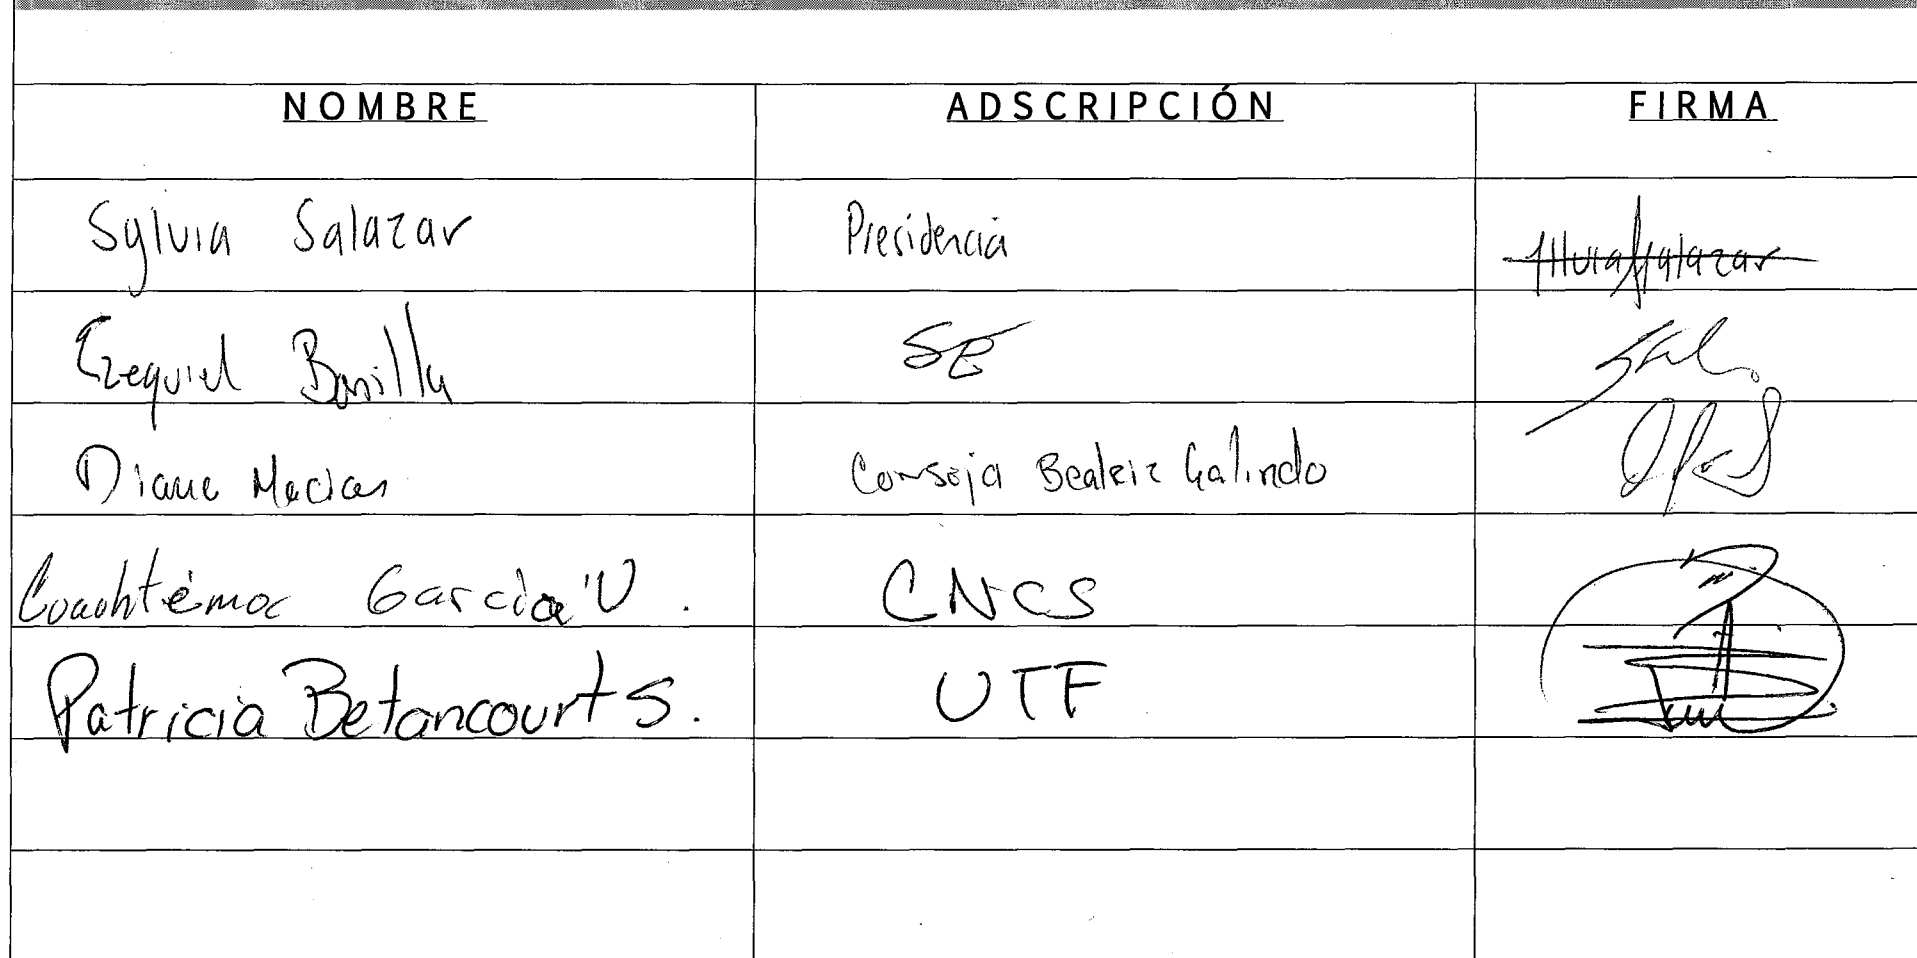 NOMBRE ADSCRIPCIÓN FIRMA
Sylvia Salazar Presidencia
Ezequiel Bonilla SE
Diane Macias Conseja Beatriz Galindo
Cuauhtémoc García U. CNCS
Patricia Betancourt S. UTF